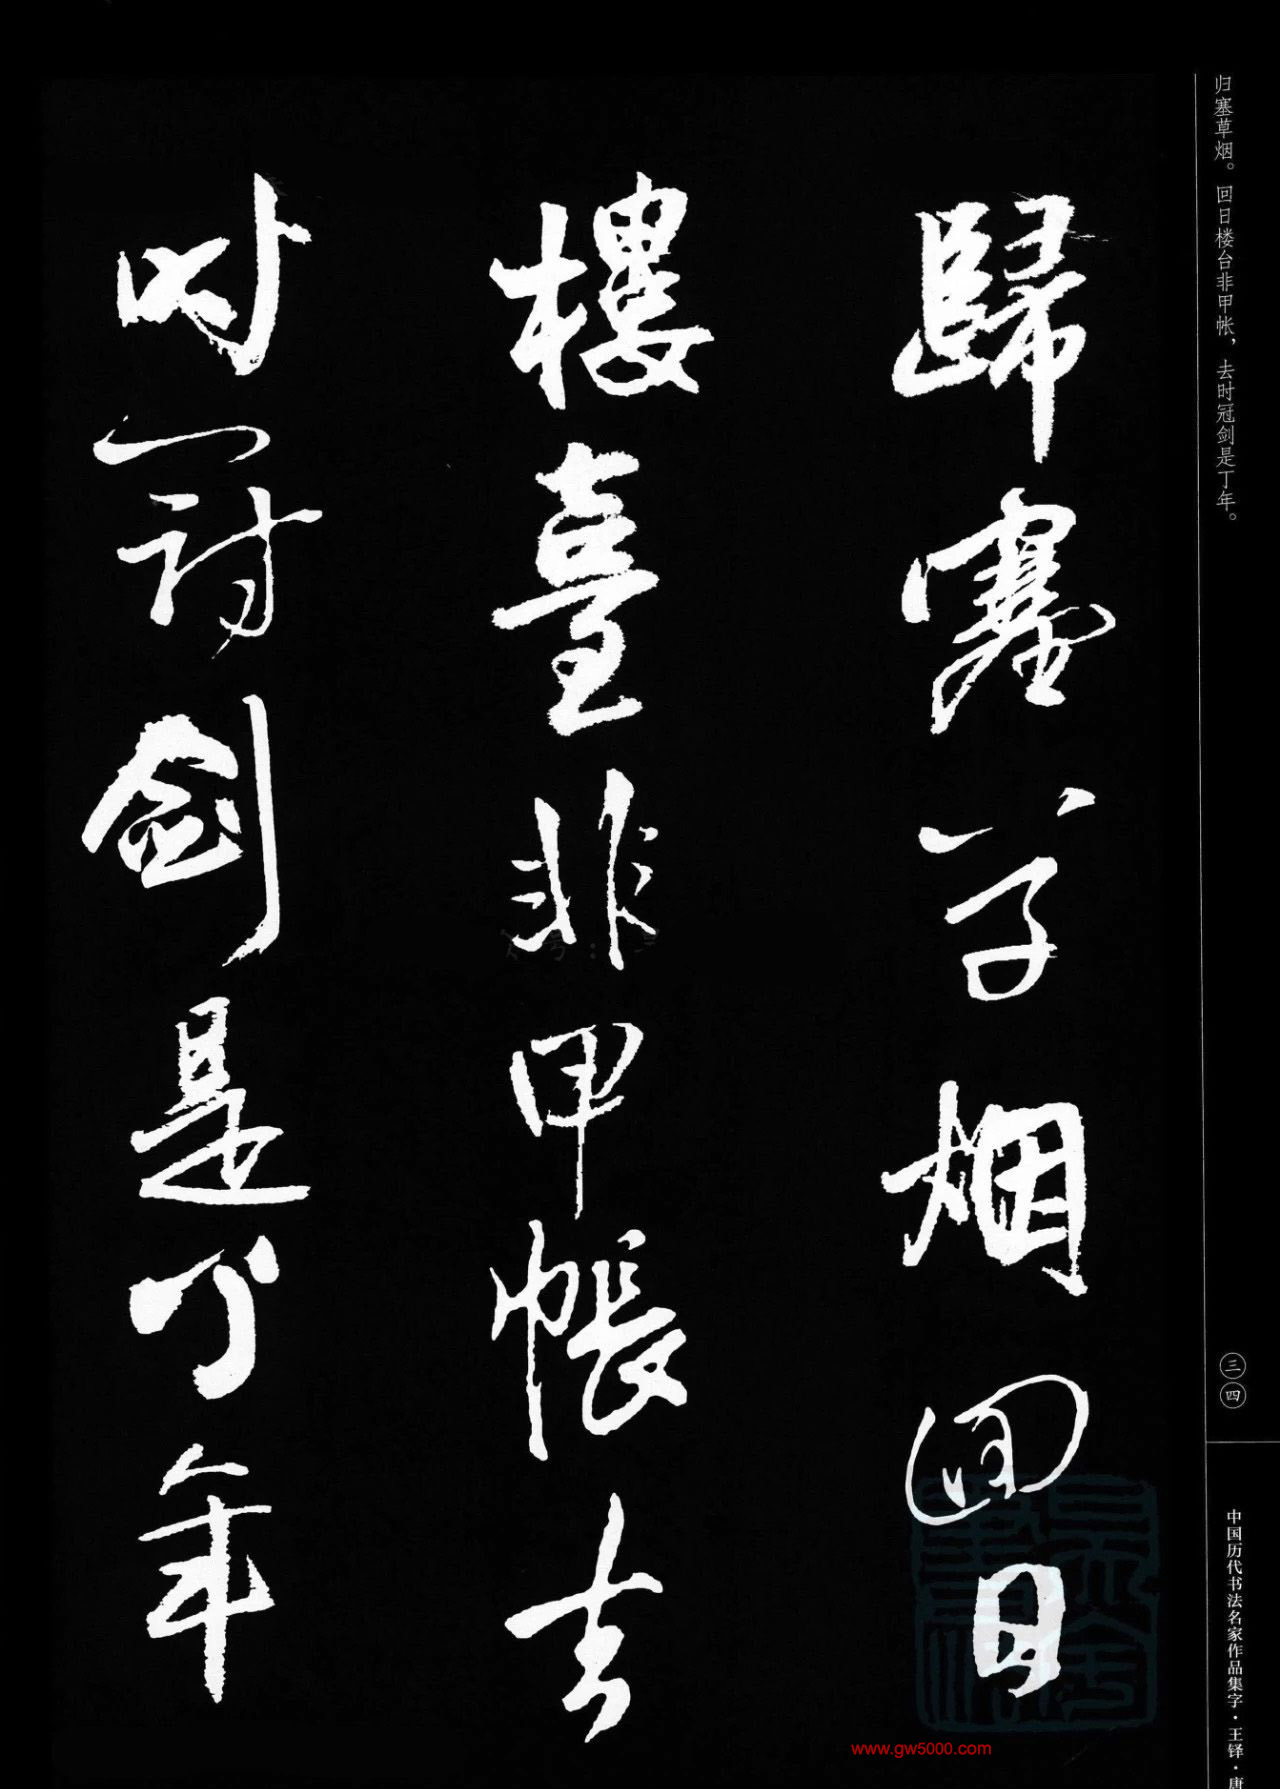 归塞草烟。回日楼台非甲帐，去时冠剑是丁年。
歸塞草烟回日
樓臺非甲帳去
时冠劍是丁年
三四
中国历代书法名家作品集字·王铎·唐
www.gw5000.com